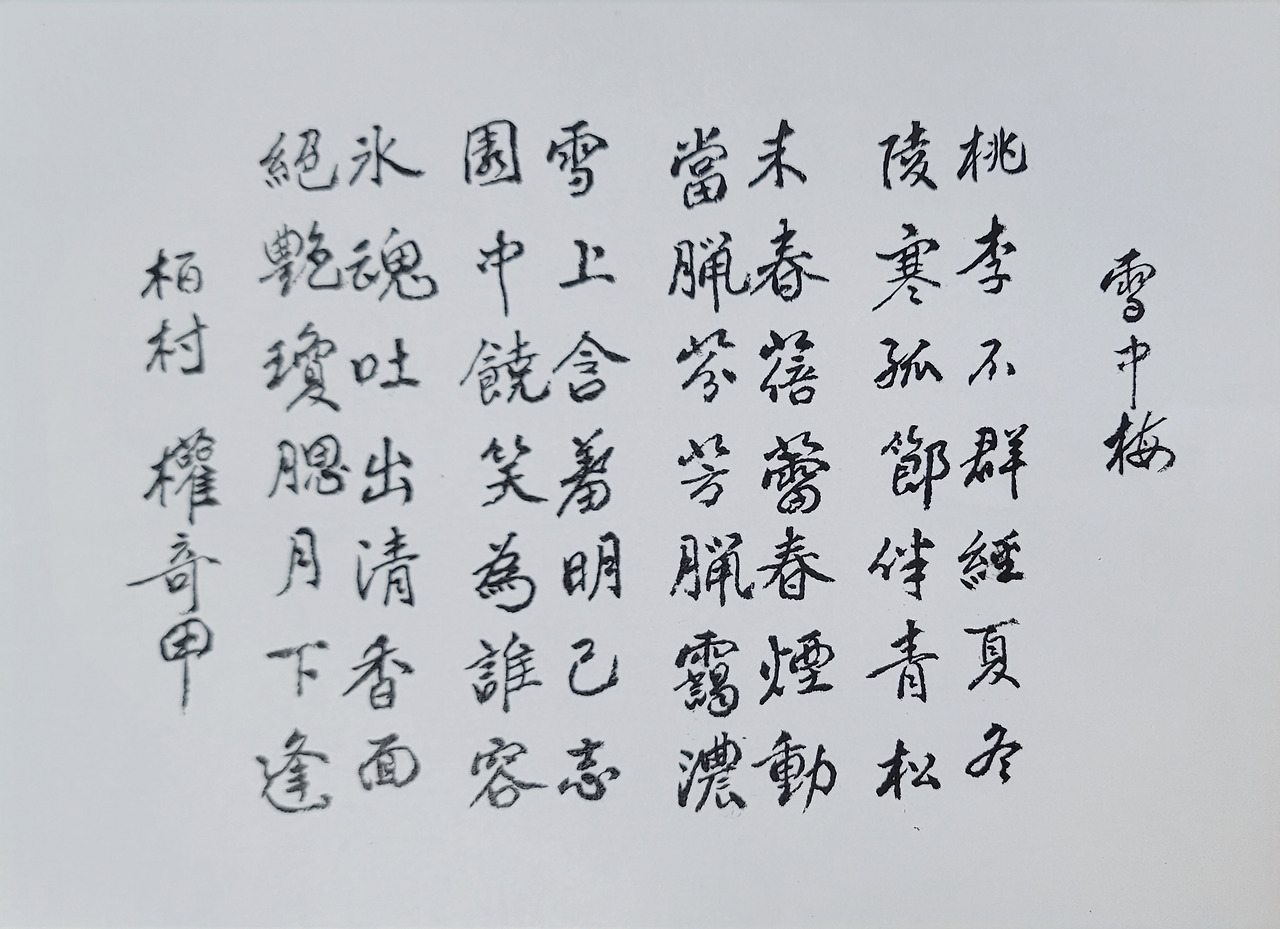 雪中梅
桃李不群經夏冬
陵寒孤節伴青松
未春蓓蕾春煙動
當臘芬芳臘靄濃
雪上含羞明己志
園中饒笑為誰容
氷魂吐出清香面
絕艷瓊腮月下逢
栢村 權奇甲